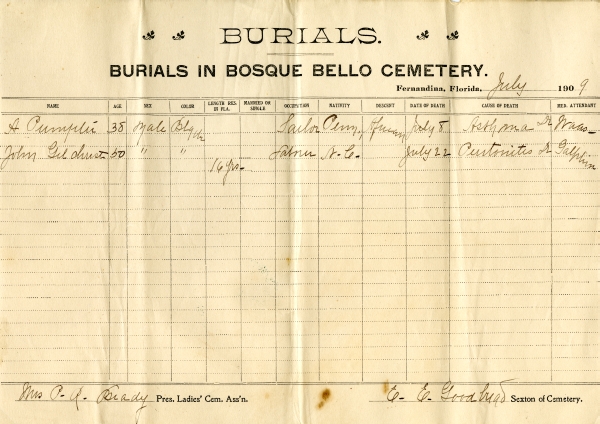 BURIALS.
BURIALS IN BOSQUE BELLO CEMETERY.
Fernandina, Florida, July 1909
NAME AGE SEX COLOR LENGTH RES. IN FLA. MARRIED OR SINGLE OCCUPATION NATIVITY DESCENT DATE OF DEATH CAUSE OF DEATH MED. ATTENDANT
A 38 Male Sailor July 8 Asthma Dr
John Gilchrist 50 " " 16 yrs Laborer N.C. July 22 Dr Galphin
Mrs P. R. Brady Pres. Ladies' Cem. Ass'n. C. E. Goodbread Sexton of Cemetery.